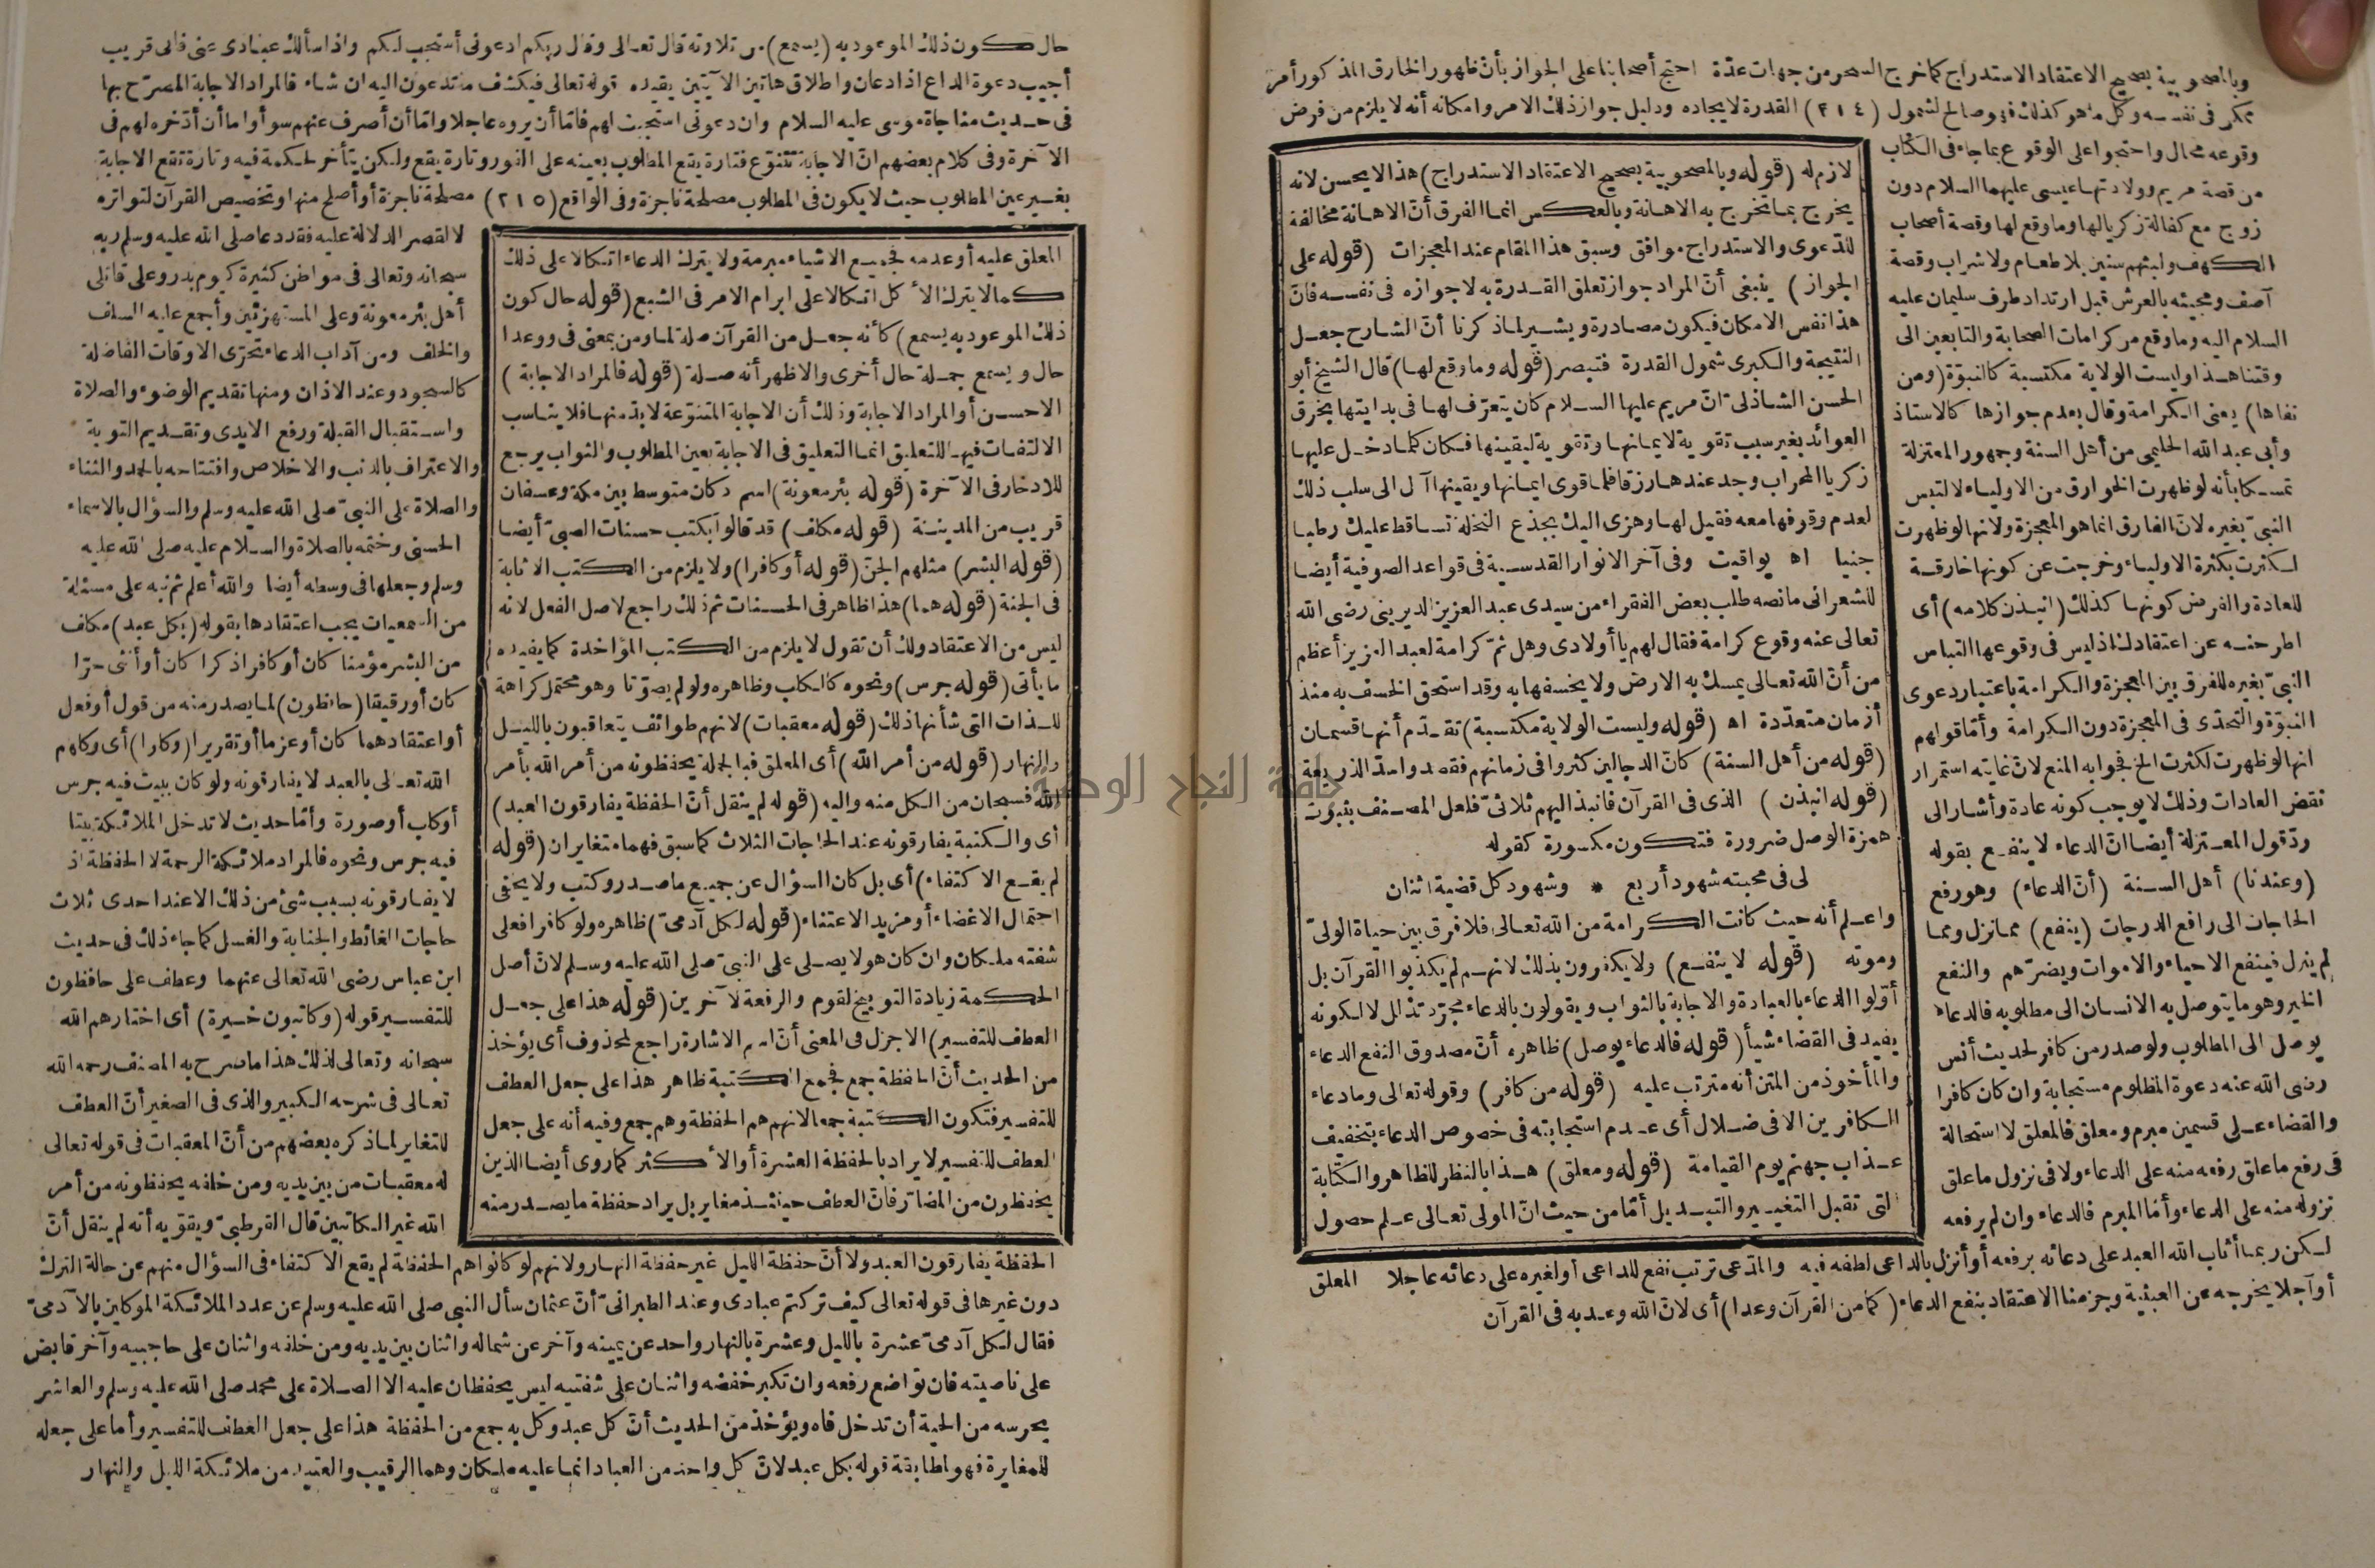 وبالمصحوبية بصحيح الاعتقاد الاستدراج كما خرج السحر من جهات عدّة احتج أصحابنا على الجواز بأن ظهور الخارق المذكور أمر
ممكن فى نفسه وكل ما هو كذلك فهو صالح لشمول (٢١٤) القدرة لايجاده ودليل جواز ذلك الامر وامكانه أنه لا يلزم من فرض
وقوعه محال واحتجوا على الوقوع بما جاء فى الكتاب
من قصة مريم وولادتها عيسى عليهما السلام دون
زوج مع كفالة زكريا لها وما وقع لها وقصة أصحاب
الكهف ولبثهم سنين بلا طعام ولا شراب وقصة
آصف ومجيئه بالعرش قبل ارتداد طرف سليمان عليه
السلام اليه وما وقع من كرامات الصحابة والتابعين الى
وقتنا هذا وليست الولاية مكتسبة كالنبوّة (ومن
نفاها) يعنى الكرامة وقال بعدم جوازها كالاستاذ
وأبى عبد الله الحليمى من أهل السنة وجمهور المعتزلة
تمسكا بأنه لو ظهرت الخوارق من الاولياء لالتبس
النبىّ بغيره لانّ الفارق انما هو المعجزة ولانها لو ظهرت
لكثرت بكثرة الاولياء وخرجت عن كونها خارقة
للعادة والفرض كونها كذلك (انبذن كلامه) أى
اطرحنه عن اعتقادك اذ ليس فى وقوعها التباس
النبىّ بغيره للفرق بين المعجزة والكرامة باعتبار دعوى
النبوّة والتحدّى فى المعجزة دون الكرامة وأمّا قولهم
انها لو ظهرت لكثرت الخ فجوابه المنع لانّ غايته استمرار
نقض العادات وذلك لا يوجب كونه عادة وأشار الى
ردّ قول المعتزلة أيضا انّ الدعاء لا ينفع بقوله
(وعندنا) أهل السنة (أن الدعاء) وهو رفع
الحاجات الى رافع الدرجات (ينفع) مما نزل ومما
لم ينزل فينفع الاحياء والاموات ويضرّهم والنفع
الخير وهو ما يتوصل به الانسان الى مطلوبه فالدعاء
يوصل الى المطلوب ولو صدر من كافر لحديث أنس
رضى الله عنه دعوة المظلوم مستجابة وان كان كافرا
والقضاء على قسمين مبرم ومعلق فالمعلق لا استحالة
فى رفع ما علق رفعه منه على الدعاء ولا فى نزول ما علق
نزوله منه على الدعاء وأمّا المبرم فالدعاء وان لم يرفعه
لكن ربما أثاب الله العبد على دعائه برفعه أو أنزل بالداعى لطفه فيه والمدّعى ترتب نفع للداعى أو لغيره على دعائه عاجلا
أو آجلا يخرجه عن العبثية وجزمنا الاعتقاد بنفع الدعاء (كما من القرآن وعدا) أى لانّ الله وعد به فى القرآن
لازم له (قوله وبالمصحوبية بصحيح الاعتقاد الاستدراج) هذا لا يحسن لانه
يخرج بما تخرج به الاهانة وبالعكس انما الفرق أنّ الاهانة مخالفة
للدعوى والاستدراج موافق وسبق هذا المقام عند المعجزات (قوله على
الجواز) ينبغى أنّ المراد جواز تعلق القدرة به لا جوازه فى نفسه فانّ
هذا نفس الامكان فيكون مصادرة ويشير لما ذكرنا أنّ الشارح جعل
النتيجة والكبرى شمول القدرة فتبصر (قوله وما وقع لها) قال الشيخ أبو
الحسن الشاذلىّ انّ مريم عليها السلام كان يتعرّف لها فى بدايتها بخرق
العوائد بغير سبب تقوية لايمانها وتقوية ليقينها فكان كلما دخل عليها
زكريا المحراب وجد عندها رزقا فلما قوى ايمانها ويقينها آل الى سلب ذلك
لعدم وقوفها معه فقيل لها وهزى اليك بجذع النخلة تساقط عليك رطبا
جنيا اه يواقيت وفى آخر الانوار القدسية فى قواعد الصوفية أيضا
للشعرانى ما نصه طلب بعض الفقراء من سيدى عبد العزيز الديرينى رضى الله
تعالى عنه وقوع كرامة فقال لهم يا أولادى وهل ثمّ كرامة لعبد العزيز أعظم
من أنّ الله تعالى يمسك به الارض ولا يخسفها به وقد استحق الخسف به منذ
أزمان متعدّدة اه (قوله وليست الولاية مكتسبة) تقدّم أنها قسمان
(قوله من أهل السنة) كانّ الدجالين كثروا فى زمانهم فقصدوا سدّ الذريعة
(قوله انبذن) الذى فى القرآن فانبذ اليهم ثلاثىّ فلعل المصنف بثبوت
همزة الوصل ضرورة فتكون مكسورة كقوله
لى فى محبته شهود أربع * وشهود كل قضية اثنان
واعلم أنه حيث كانت الكرامة من الله تعالى فلا فرق بين حياة الولىّ
وموته (قوله لا ينفع) ولا يكفرون بذلك لانهم لم يكذبوا القرآن بل
أوّلوا الدعاء بالعبادة والاجابة بالثواب ويقولون بالدعاء مجرّد تذلل لا لكونه
يفيد فى القضاء شيأ (قوله فالدعاء يوصل) ظاهره أنّ مصدوق النفع الدعاء
والمأخوذ من المتن أنه مترتب عليه (قوله من كافر) وقوله تعالى وما دعاء
الكافرين الا فى ضلال أى عدم استجابته فى خصوص الدعاء بتخفيف
عذاب جهنم يوم القيامة (قوله ومعلق) هذا بالنظر للظاهر والكتابة
التى تقبل التغيير والتبديل أمّا من حيث انّ المولى تعالى علم حصول
المعلق
حال كون ذلك الموعود به (يسمع) من تلاوته قال تعالى وقال ربكم ادعونى أستجب لكم واذا سألك عبادى عنى فانى قريب
أجيب دعوة الداع اذا دعان واطلاق هاتين الآيتين يقيده قوله تعالى فيكشف ما تدعون اليه ان شاء فالمراد الاجابة المصرّح بها
فى حديث مناجاة موسى عليه السلام وان دعونى استجبت لهم فامّا أن يروه عاجلا وامّا أن أصرف عنهم سوأ واما أن أذخره لهم فى
الآخرة وفى كلام بعضهم انّ الاجابة تتنوّع فتارة يقع المطلوب بعينه على الفور وتارة يقع ولكن يتأخر لحكمة فيه وتارة تقع الاجابة
بغير عين المطلوب حيث لا يكون فى المطلوب مصلحة ناجزة وفى الواقع (٢١٥) مصلحة ناجزة أو أصلح منها وتخصيص القرآن لتواتره
لا لقصر الدلالة عليه فقد دعا صلى الله عليه وسلم ربه
سبحانه وتعالى فى مواطن كثيرة كيوم بدر وعلى قاتلى
أهل بئر معونة وعلى المستهزئين وأجمع عليه السلف
والخلف ومن آداب الدعاء تحرّى الاوقات الفاضلة
كالسجود وعند الاذان ومنها تقديم الوضوء والصلاة
واستقبال القبلة ورفع الايدى وتقديم التوبة
والاعتراف بالذنب والاخلاص وافتتاحه بالحمد والثناء
والصلاة على النبىّ صلى الله عليه وسلم والسؤال بالاسماء
الحسنى وختمه بالصلاة والسلام عليه صلى الله عليه
وسلم وجعلها فى وسطه أيضا والله أعلم ثم نبه على مسئلة
من السمعيات يجب اعتقادها بقوله (بكل عبد) مكلف
من البشر مؤمنا كان أو كافرا ذكرا كان أو أنثى حرّا
كان أو رقيقا (حافظون) لما يصدر منه من قول أو فعل
أو اعتقاد هما كان أو عزما أو تقريرا (وكلوا) أى وكلهم
الله تعالى بالعبد لا يفارقونه ولو كان ببيت فيه جرس
أو كلب أو صورة وأمّا حديث لا تدخل الملائكة بيتا
فيه جرس ونحوه فالمراد ملائكة الرحمة لا الحفظة اذ
لا يفارقونه بسبب شئ من ذلك الا عند احدى ثلاث
حاجات الغائط والجنابة والغسل كما جاء ذلك فى حديث
ابن عباس رضى الله تعالى عنهما وعطف على حافظون
للتفسير قوله (وكاتبون خيرة) أى اختارهم الله
سبحانه وتعالى لذلك هذا ما صرح به المصنف رحمه الله
تعالى فى شرحه الكبير والذى فى الصغير أنّ العطف
للتغاير لما ذكره بعضهم من أنّ المعقبات فى قوله تعالى
له معقبات من بين يديه ومن خلفه يحفظونه من أمر
الله غير الكاتبين قال القرطبىّ ويقوّيه أنه لم ينقل أنّ
الحفظة يفارقون العبد ولا أنّ حفظة الليل غير حفظة النهار ولانهم لو كانوا هم الحفظة لم يقع الاكتفاء فى السؤال منهم عن حالة الترك
دون غيرها فى قوله تعالى كيف تركتم عبادى وعند الطبرانىّ أنّ عثمان سأل النبى صلى الله عليه وسلم عن عدد الملائكة الموكلين بالآدمىّ
فقال لكل آدمىّ عشرة بالليل وعشرة بالنهار واحد عن يمينه وآخر عن شماله واثنان بين يديه ومن خلفه واثنان على حاجبيه وآخر قابض
على ناصيته فان تواضع رفعه وان تكبر خفضه واثنان على شفتيه ليس يحفظان عليه الا الصلاة على محمد صلى الله عليه وسلم والعاشر
يحرسه من الحية أن تدخل فاه ويؤخذ من الحديث أنّ كل عبد وكل به جمع من الحفظة هذا على جعل العطف للتفسير وأما على جعله
للمغايرة فهو لمطابقة قوله بكل عبد لانّ كل واحد من العباد انما عليه ملكان وهما الرقيب والعتيد من ملائكة الليل والنهار
المعلق عليه أو عدمه فجميع الاشياء مبرمة ولا يترك الدعاء اتكالا على ذلك
كما لا يترك الأكل اتكالا على ابرام الامر فى الشبع (قوله حال كون
ذلك الموعود به يسمع) كأنه جعل من القرآن صلة لما ومن بمعنى فى ووعدا
حال ويسمع جملة حال أخرى والاظهر أنه صلة (قوله فالمراد الاجابة)
الاحسن أو المراد الاجابة وذلك أن الاجابة المتنوّعة لا بدّ منها فلا يناسب
الالتفات فيها للتعليق انما التعليق فى الاجابة بعين المطلوب والثواب يرجع
للادخار فى الآخرة (قوله بئر معونة) اسم مكان متوسط بين مكة وعسفان
قريب من المدينة (قوله مكلف) قد قالوا بكتب حسنات الصبىّ أيضا
(قوله البشر) مثلهم الجنّ (قوله أو كافرا) ولا يلزم من الكتب الاثابة
فى الجنة (قوله هما) هذا ظاهر فى الحسنات ثم ذلك راجع لاصل الفعل لانه
ليس من الاعتقاد ولك أن تقول لا يلزم من الكتب المؤاخذة كما يفيده
ما يأتى (قوله جرس) ونحوه كالكلب وظاهره ولو لم يصوّتا وهو محتمل كراهة
للذات التى شأنها ذلك (قوله معقبات) لانهم طوائف يتعاقبون بالليل
والنهار (قوله من أمر الله) أى المعلق فبالجملة يحفظونه من أمر الله بأمر
الله فسبحان من الكل منه واليه (قوله لم ينقل أنّ الحفظة يفارقون العبد)
أى والكتبة يفارقونه عند الحاجات الثلاث كما سبق فهما متغايران (قوله
لم يقع الاكتفاء) أى بل كان السؤال عن جميع ما صدر وكتب ولا يخفى
احتمال الاغضاء أو مزيد الاعتناء (قوله لكل آدمىّ) ظاهره ولو كافرا فعلى
شفته ملكان وان كان هو لا يصلى على النبىّ صلى الله عليه وسلم لانّ أصل
الحكمة زيادة التوبيخ لقوم والرفعة لآخرين (قوله هذا على جعل
العطف للتفسير) الاجزل فى المعنى أنّ اسم الاشارة راجع لمحذوف أى يؤخذ
من الحديث أنّ الحفظة جمع فجمع الكتبة ظاهر هذا على جعل العطف
للتفسير فتكون الكتبة جمعا لانهم هم الحفظة وهم جمع وفيه أنه على جعل
العطف للتفسير لا يراد بالحفظة العشرة أو الأكثر كما روى أيضا الذين
يحفظون من المضارّ فانّ العطف حينئذ مغاير بل يراد حفظة ما يصدر منه